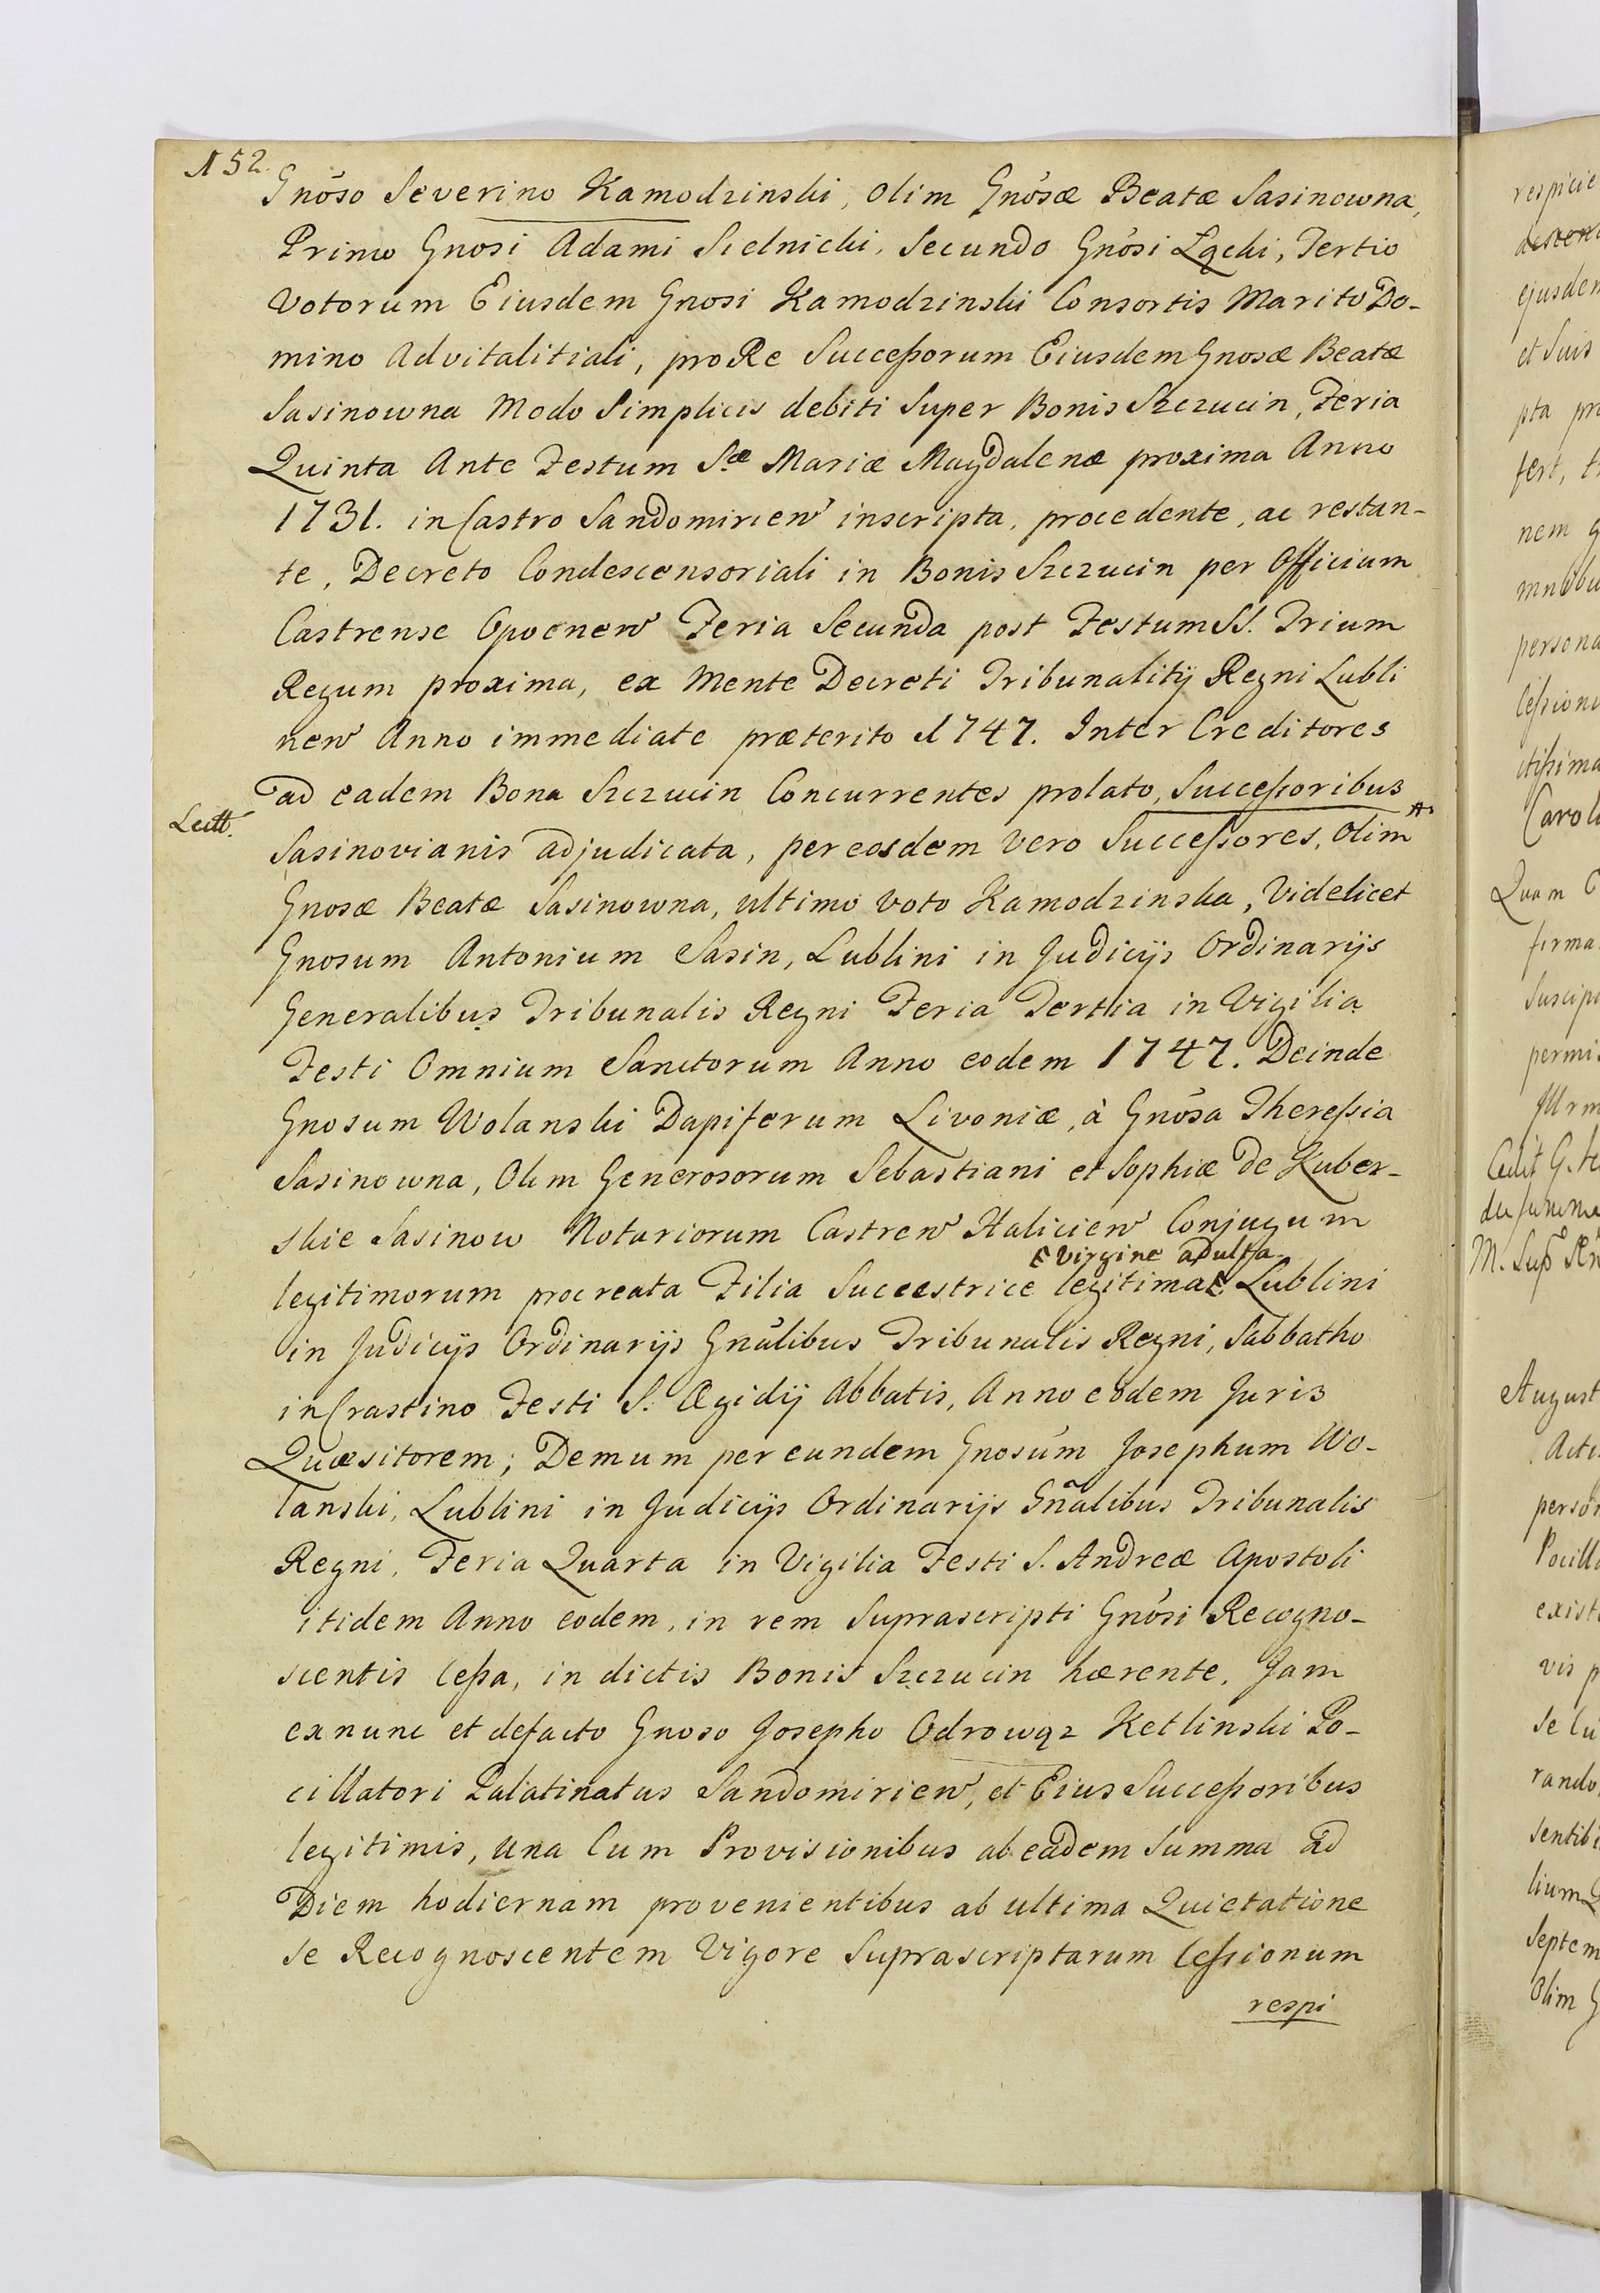 152.
Gnõso Severino Kamodzinski, olim Gnõsæ Beatæ Sasinowna,
Primo Gnosi Adami Sielnicki, Secundo Gnõsi Łącki, Tertio
Votorum Eiusdem Gnosi Kamodzinski Consortis Marito Do-
mino Advitalitiali, pro Re Succeßorum Eiusdem Gnosæ Beatæ
Sasinowna Modo Simplicis debiti Super Bonis Szczucin, Feria
Quinta Ante Festum S.æ Mariæ Magdalenæ proxima Anno
1731. in Castro Sandomirien̄ inscripta, procedente, ac restan-
te, Decreto Condescensoriali in Bonis Szczucin per Officium
Castrense Opocnen̄ Feria Secunda post Festum SS. Trium
Regum proxima, ex Mente Decreti Tribunalitij Regni Lubli
nen̄ Anno immediate præterito 1747. Inter Creditores
ad eadem Bona Szczucin Concurrentes prolato, Succeßoribus
Lectt.
Sasinovianis adjudicata, per eosdem vero Succeßores, Olim
Gnosæ Beatæ Sasinowna, ultimo voto Kamodzinska, Videlicet
Gnosum Antonium Sasin, Lublini in Judicijs Ordinarijs
Generalibus Tribunalis Regni Feria Tertia in Vigilia
Festi Omnium Sanctorum Anno eodem 1747. Deinde
Gnosum Wolanski Dapiferum Livoniæ, à Gnõsa Thereßia
Sasinowna, Olim Generosorum Sebastiani et Sophiæ de Kuber-
skie Sasinow Notariorum Castren̄ Halicien̄ Conjugum
Virgine adulta
legitimorum procreata Filia Succestrice legitima Lublini
in Judicijs Ordinarijs Gnãlibus Tribunalis Regni, Sabbatho
in Crastino Festi S. Ægidij Abbatis, Anno eodem Juris
Quæsitorem; Demum per eundem Gnosum Josephum Wo-
lanski, Lublini in Judicijs Ordinarijs Gnãlibus Tribunalis
Regni, Feria Quarta in Vigilia Festi S. Andreæ Apostoli
itidem Anno eodem, in rem Suprascripti Gnõsi Recogno-
scentis Ceßa, in dictis Bonis Szczucin hærente. Jam
ex nunc et defacto Gnoso Josepho Odrowąz Ketlinski Po-
cillatori Palatinatus Sandomirien̄, et Eius Succeßoribus
legitimis, una Cum Provisionibus ab eadem Summa ad
Diem hodiernam provenientibus ab ultima Quietatione
se Recognoscentem Vigore Suprascriptarum Ceßionum
respi